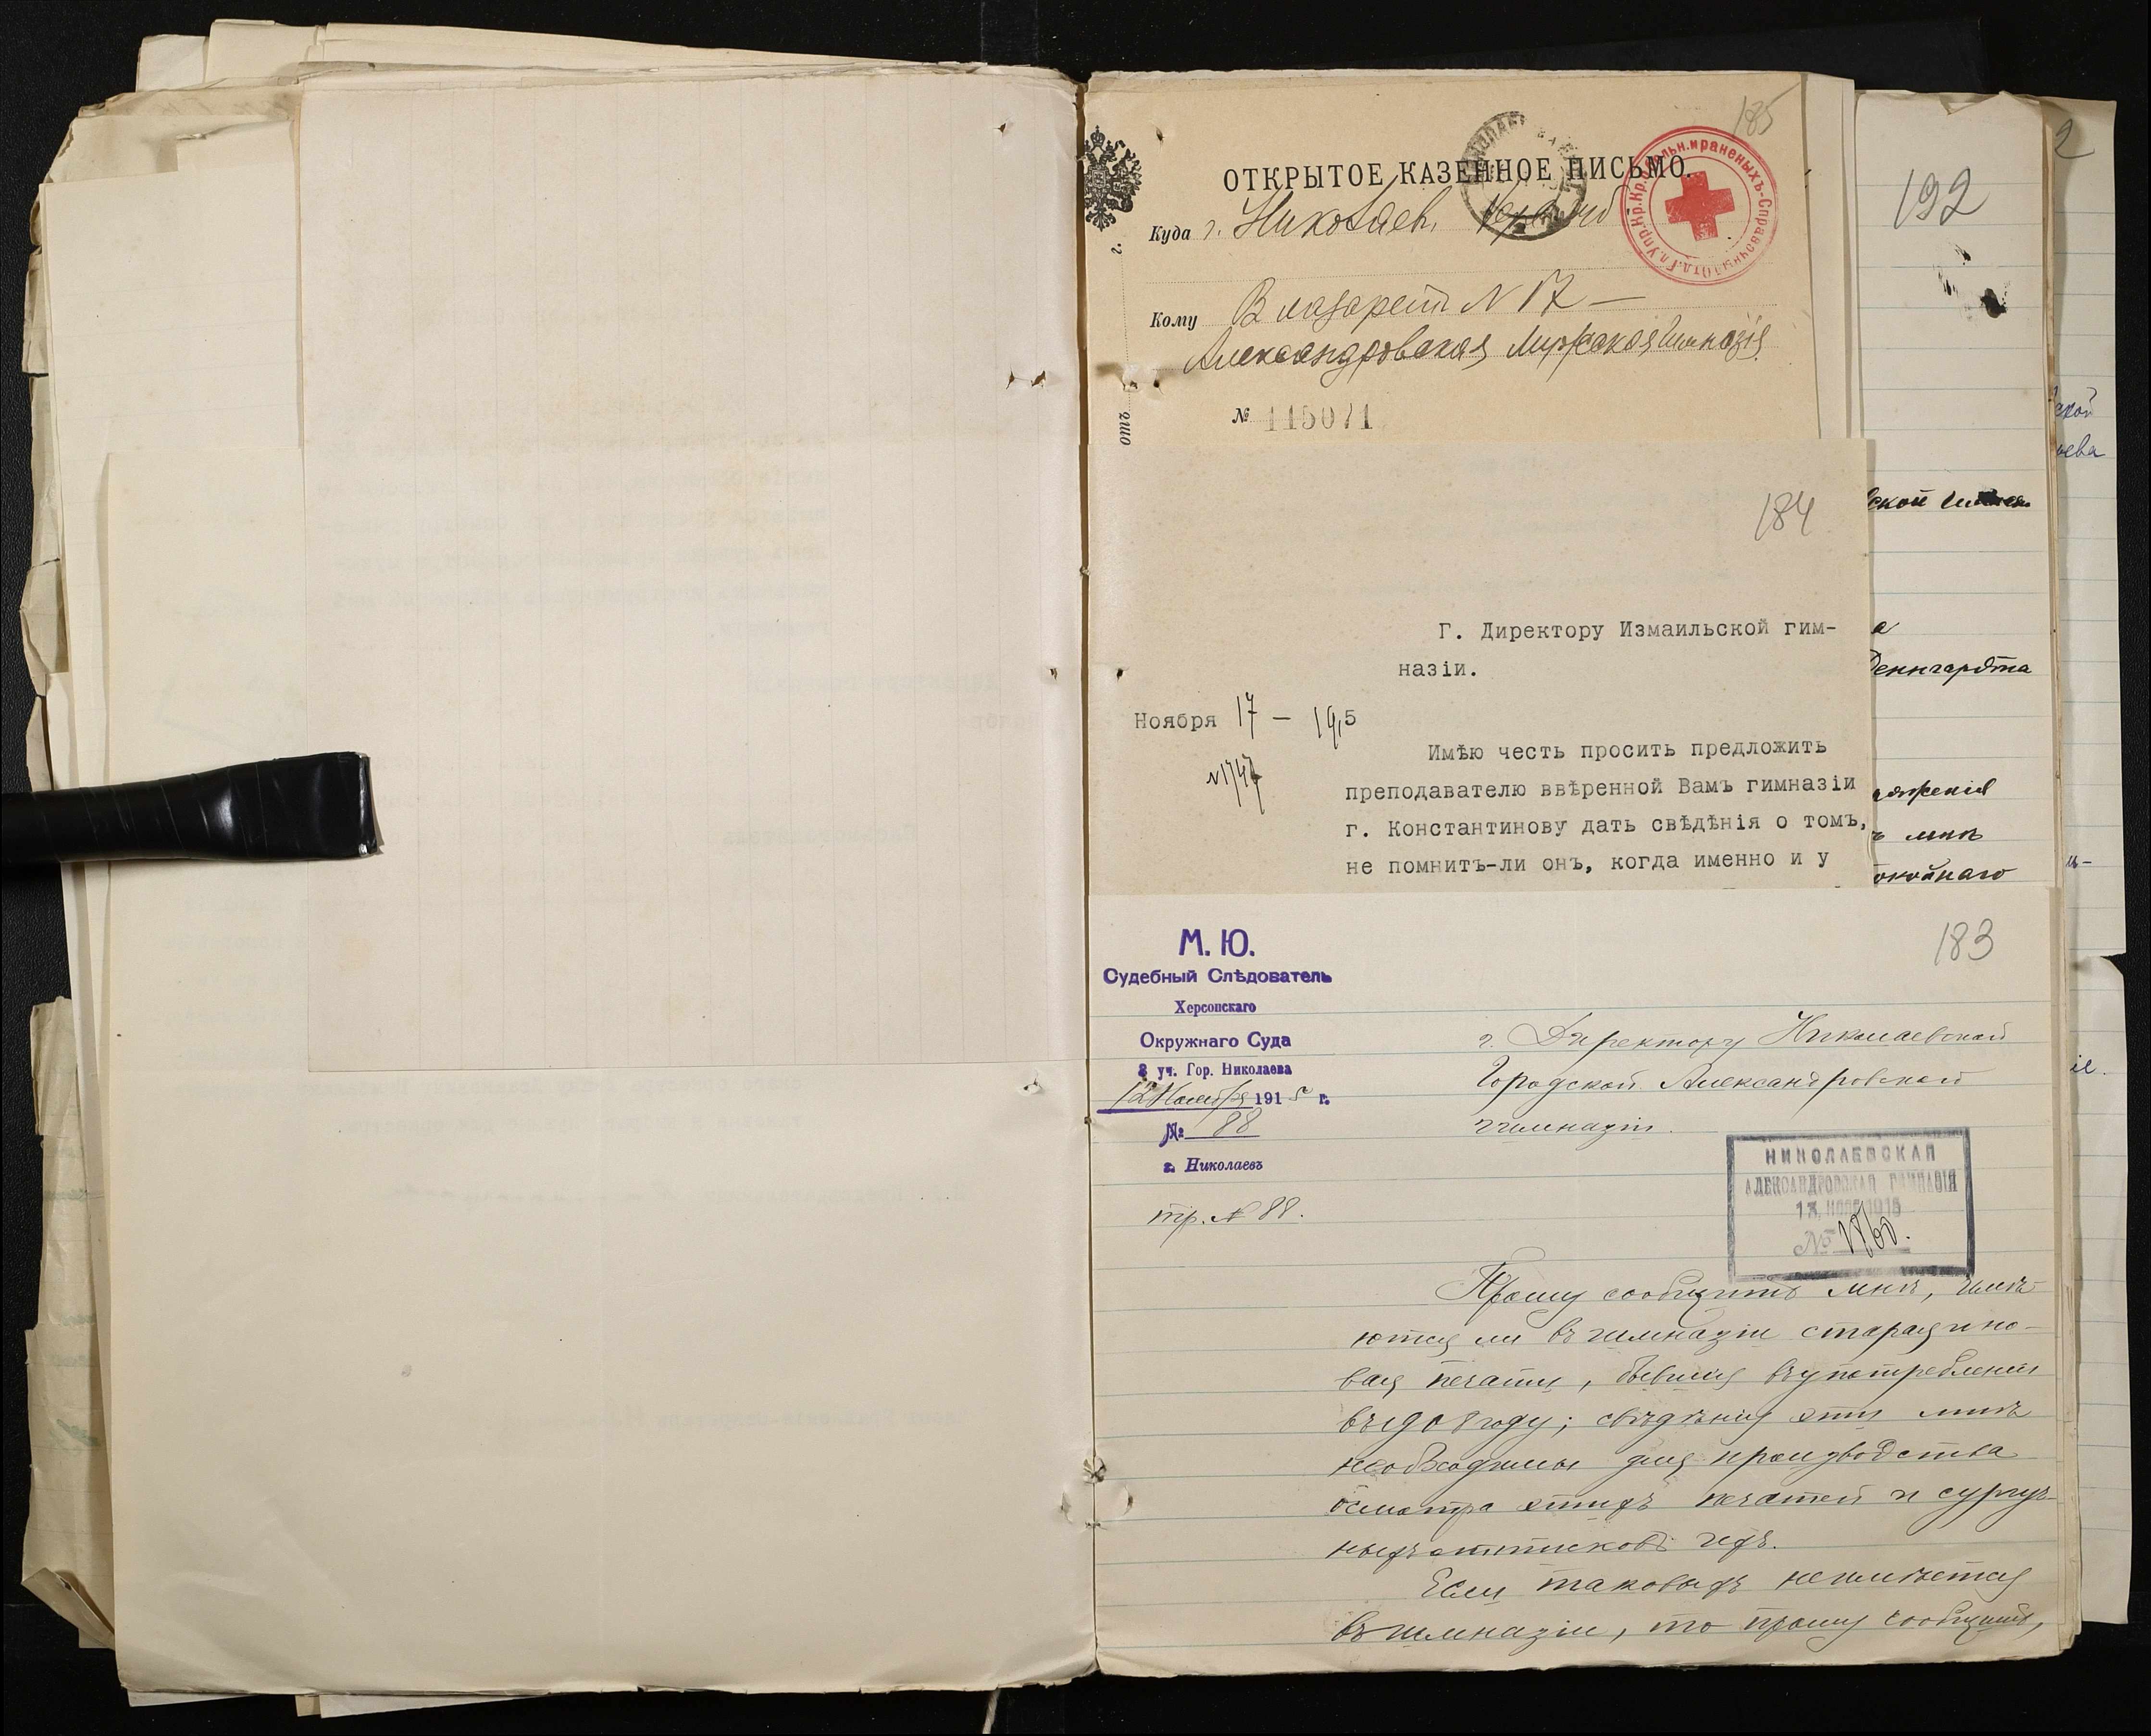 185
ОТКРЫТОЕ КАЗЕННОЕ ПИСЬМО.
Гл. Упр. Кр. Кр. больн. и раненыхъ - Справочный Отд.
Куда г. Николаев,
Кому В лазарет N 17 —
Александровская Мужская Гимназія
отъ
г.
№ 115071
184
Г. Директору Измаильской гим-
назіи.
Ноября 17 — 1915
N 1747
Имѣю честь просить предложить
преподавателю ввѣренной Вамъ гимназіи
г. Константинову дать свѣдѣнія о томъ,
не помнитъ-ли онъ, когда именно и у
183
М. Ю.
Судебный Слѣдователь
Херсонскаго
Окружнаго Суда
3 уч. Гор. Николаева
12 Ноября 1915 г.
№ 88
г. Николаевъ
тр. N 88.
г. Директору Николаевской
Городской Александровской
гимназіи.
НИКОЛАЕВСКАЯ
АЛЕКСАНДРОВСКАЯ ГИМНАЗІЯ
НОЯ 1915
№ 1860.
Прошу сообщить мнѣ, имѣ
ются ли въ гимназіи старая и но-
вая печати, бывшія въ употребленіи
въ 1908 году; свѣдѣнія эти мнѣ
необходимы для производства
осмотра этихъ печатей и сургуч
ныхъ оттисковъ ихъ.
Если таковыхъ не имѣется
въ гимназіи, то прошу сообщить,
192
ской
а
Денгардта
ъ мнѣ
окойнаго
2
ской
аева